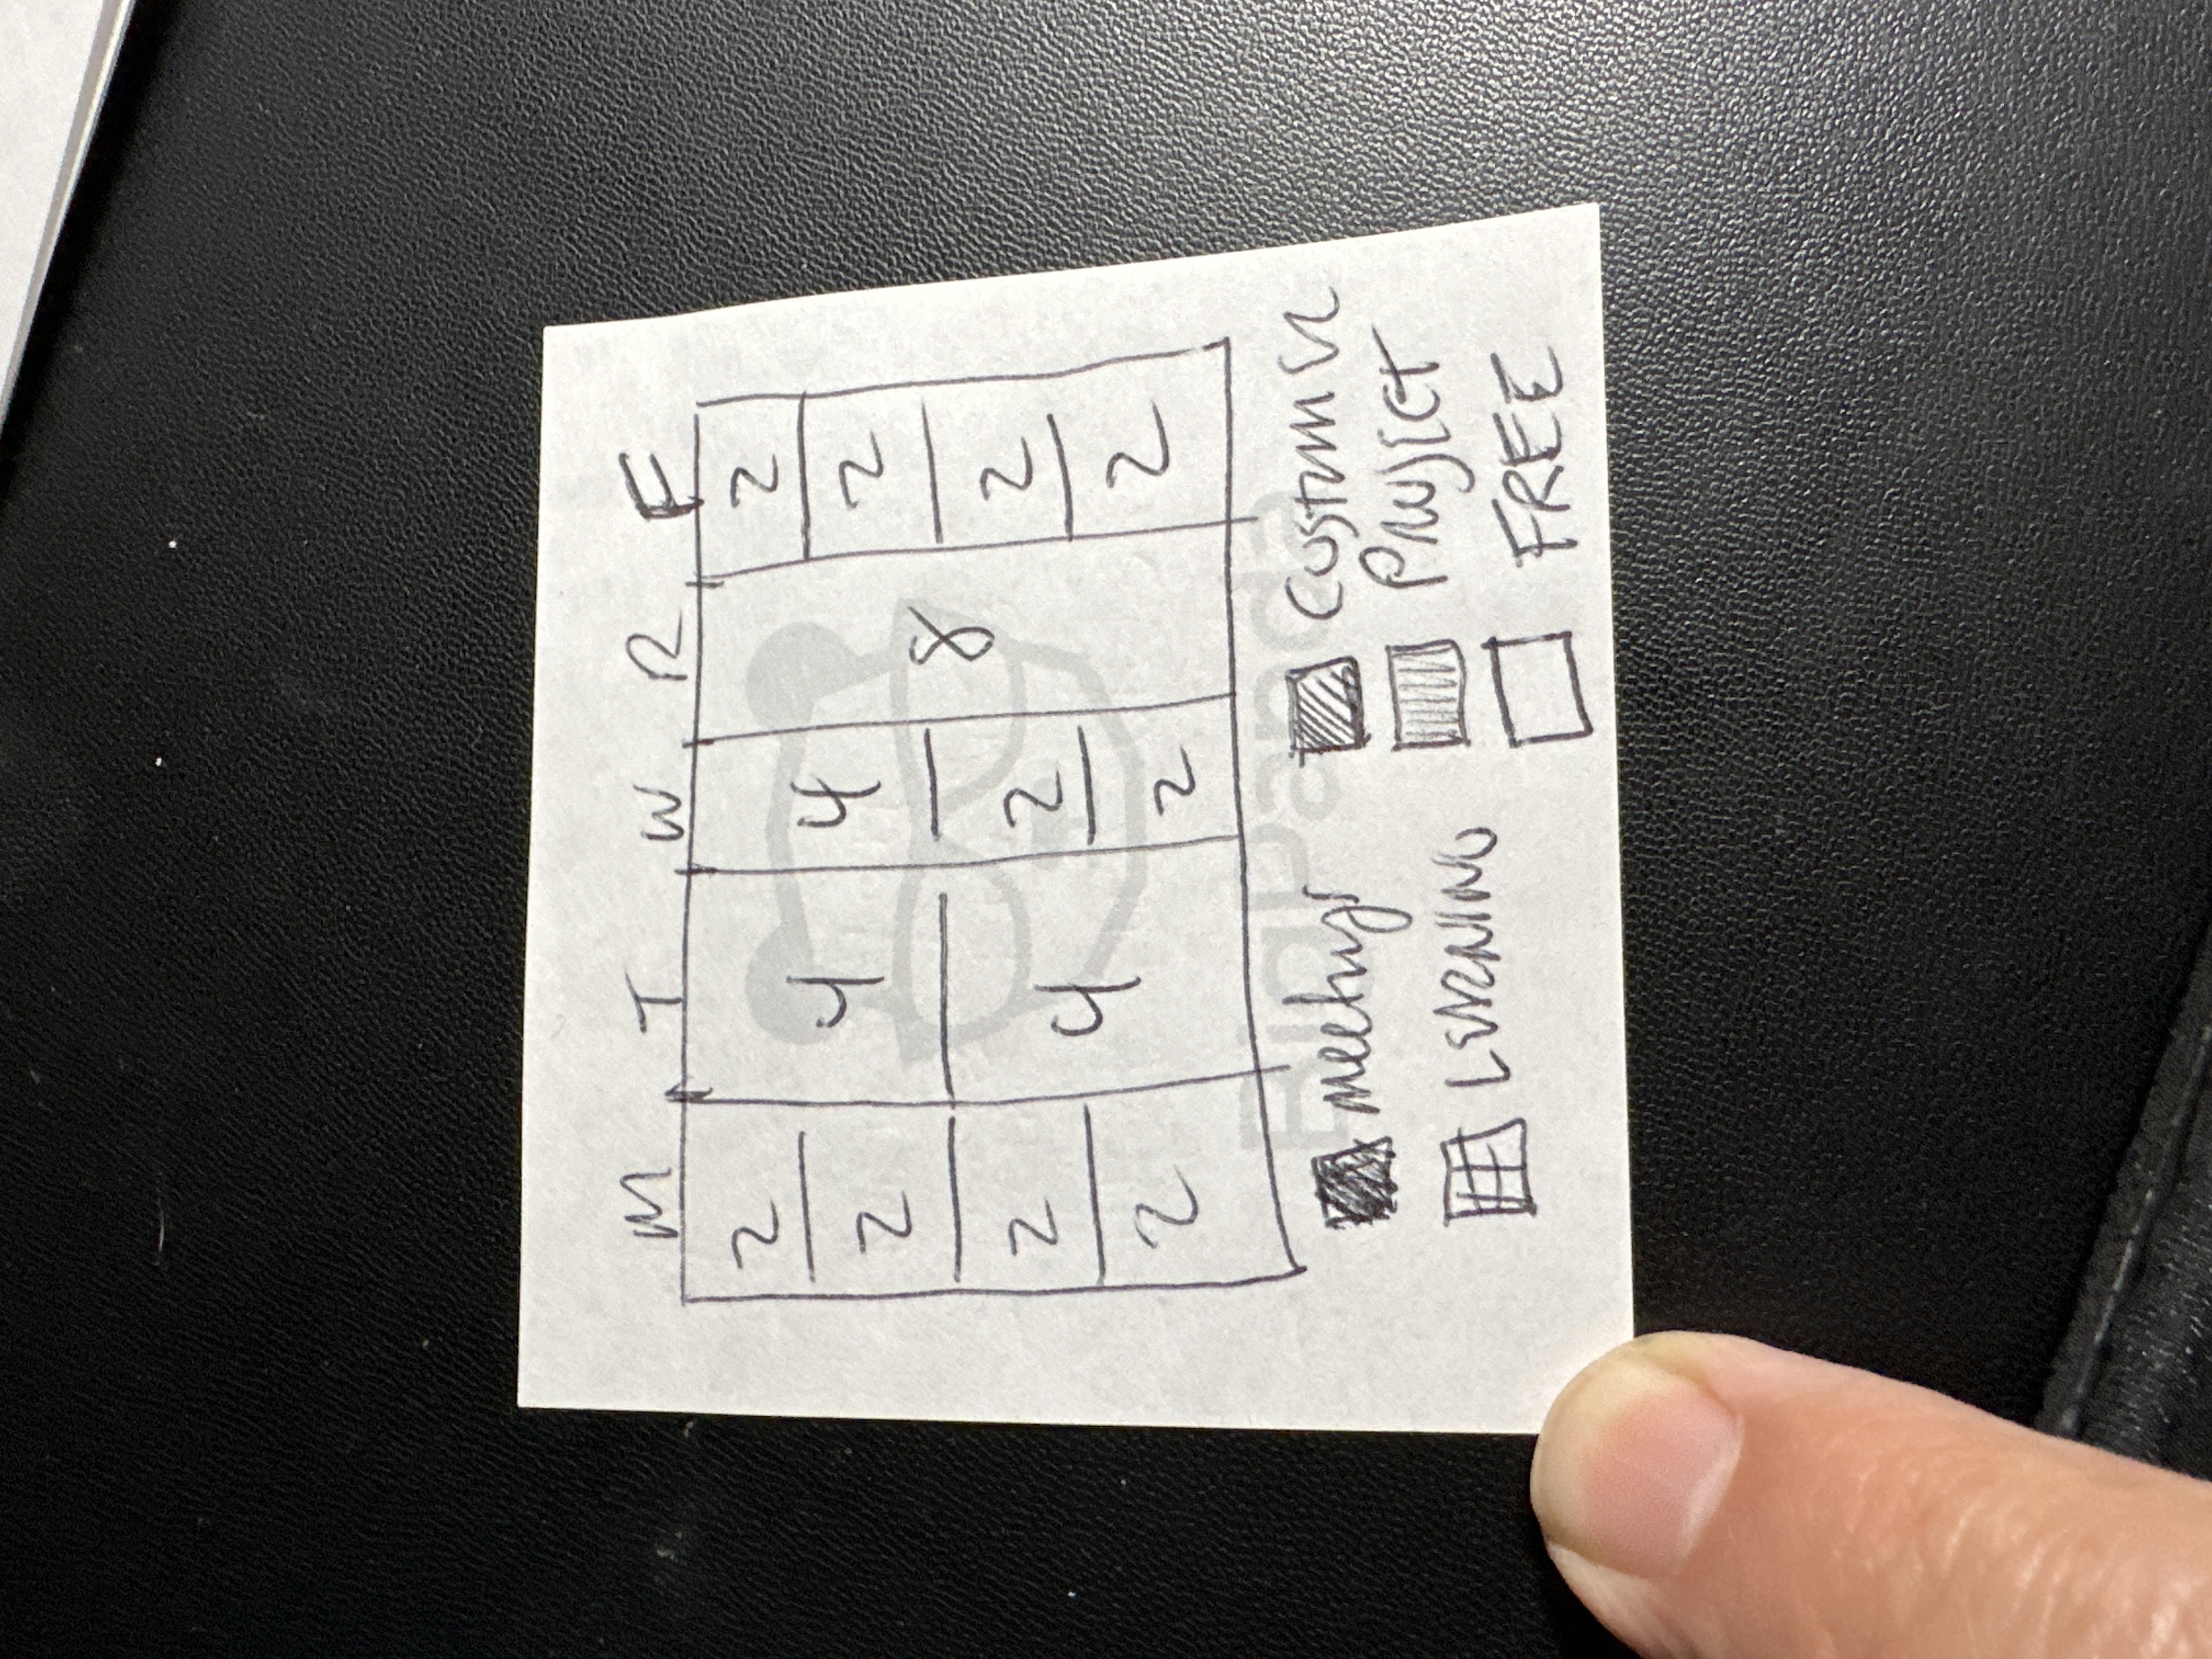 M T W R F
2 4 4 8 2
2 2
2 4 2 2
2 2 2
meetings
Customer
LEARNING
Project
FREE